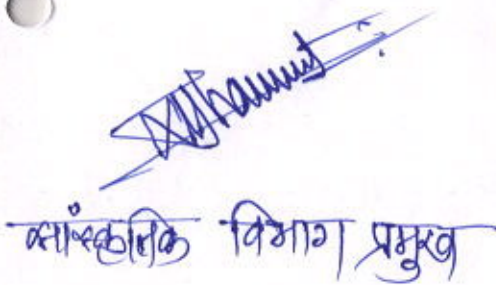 सांस्कृतिक विभाग प्रमुख